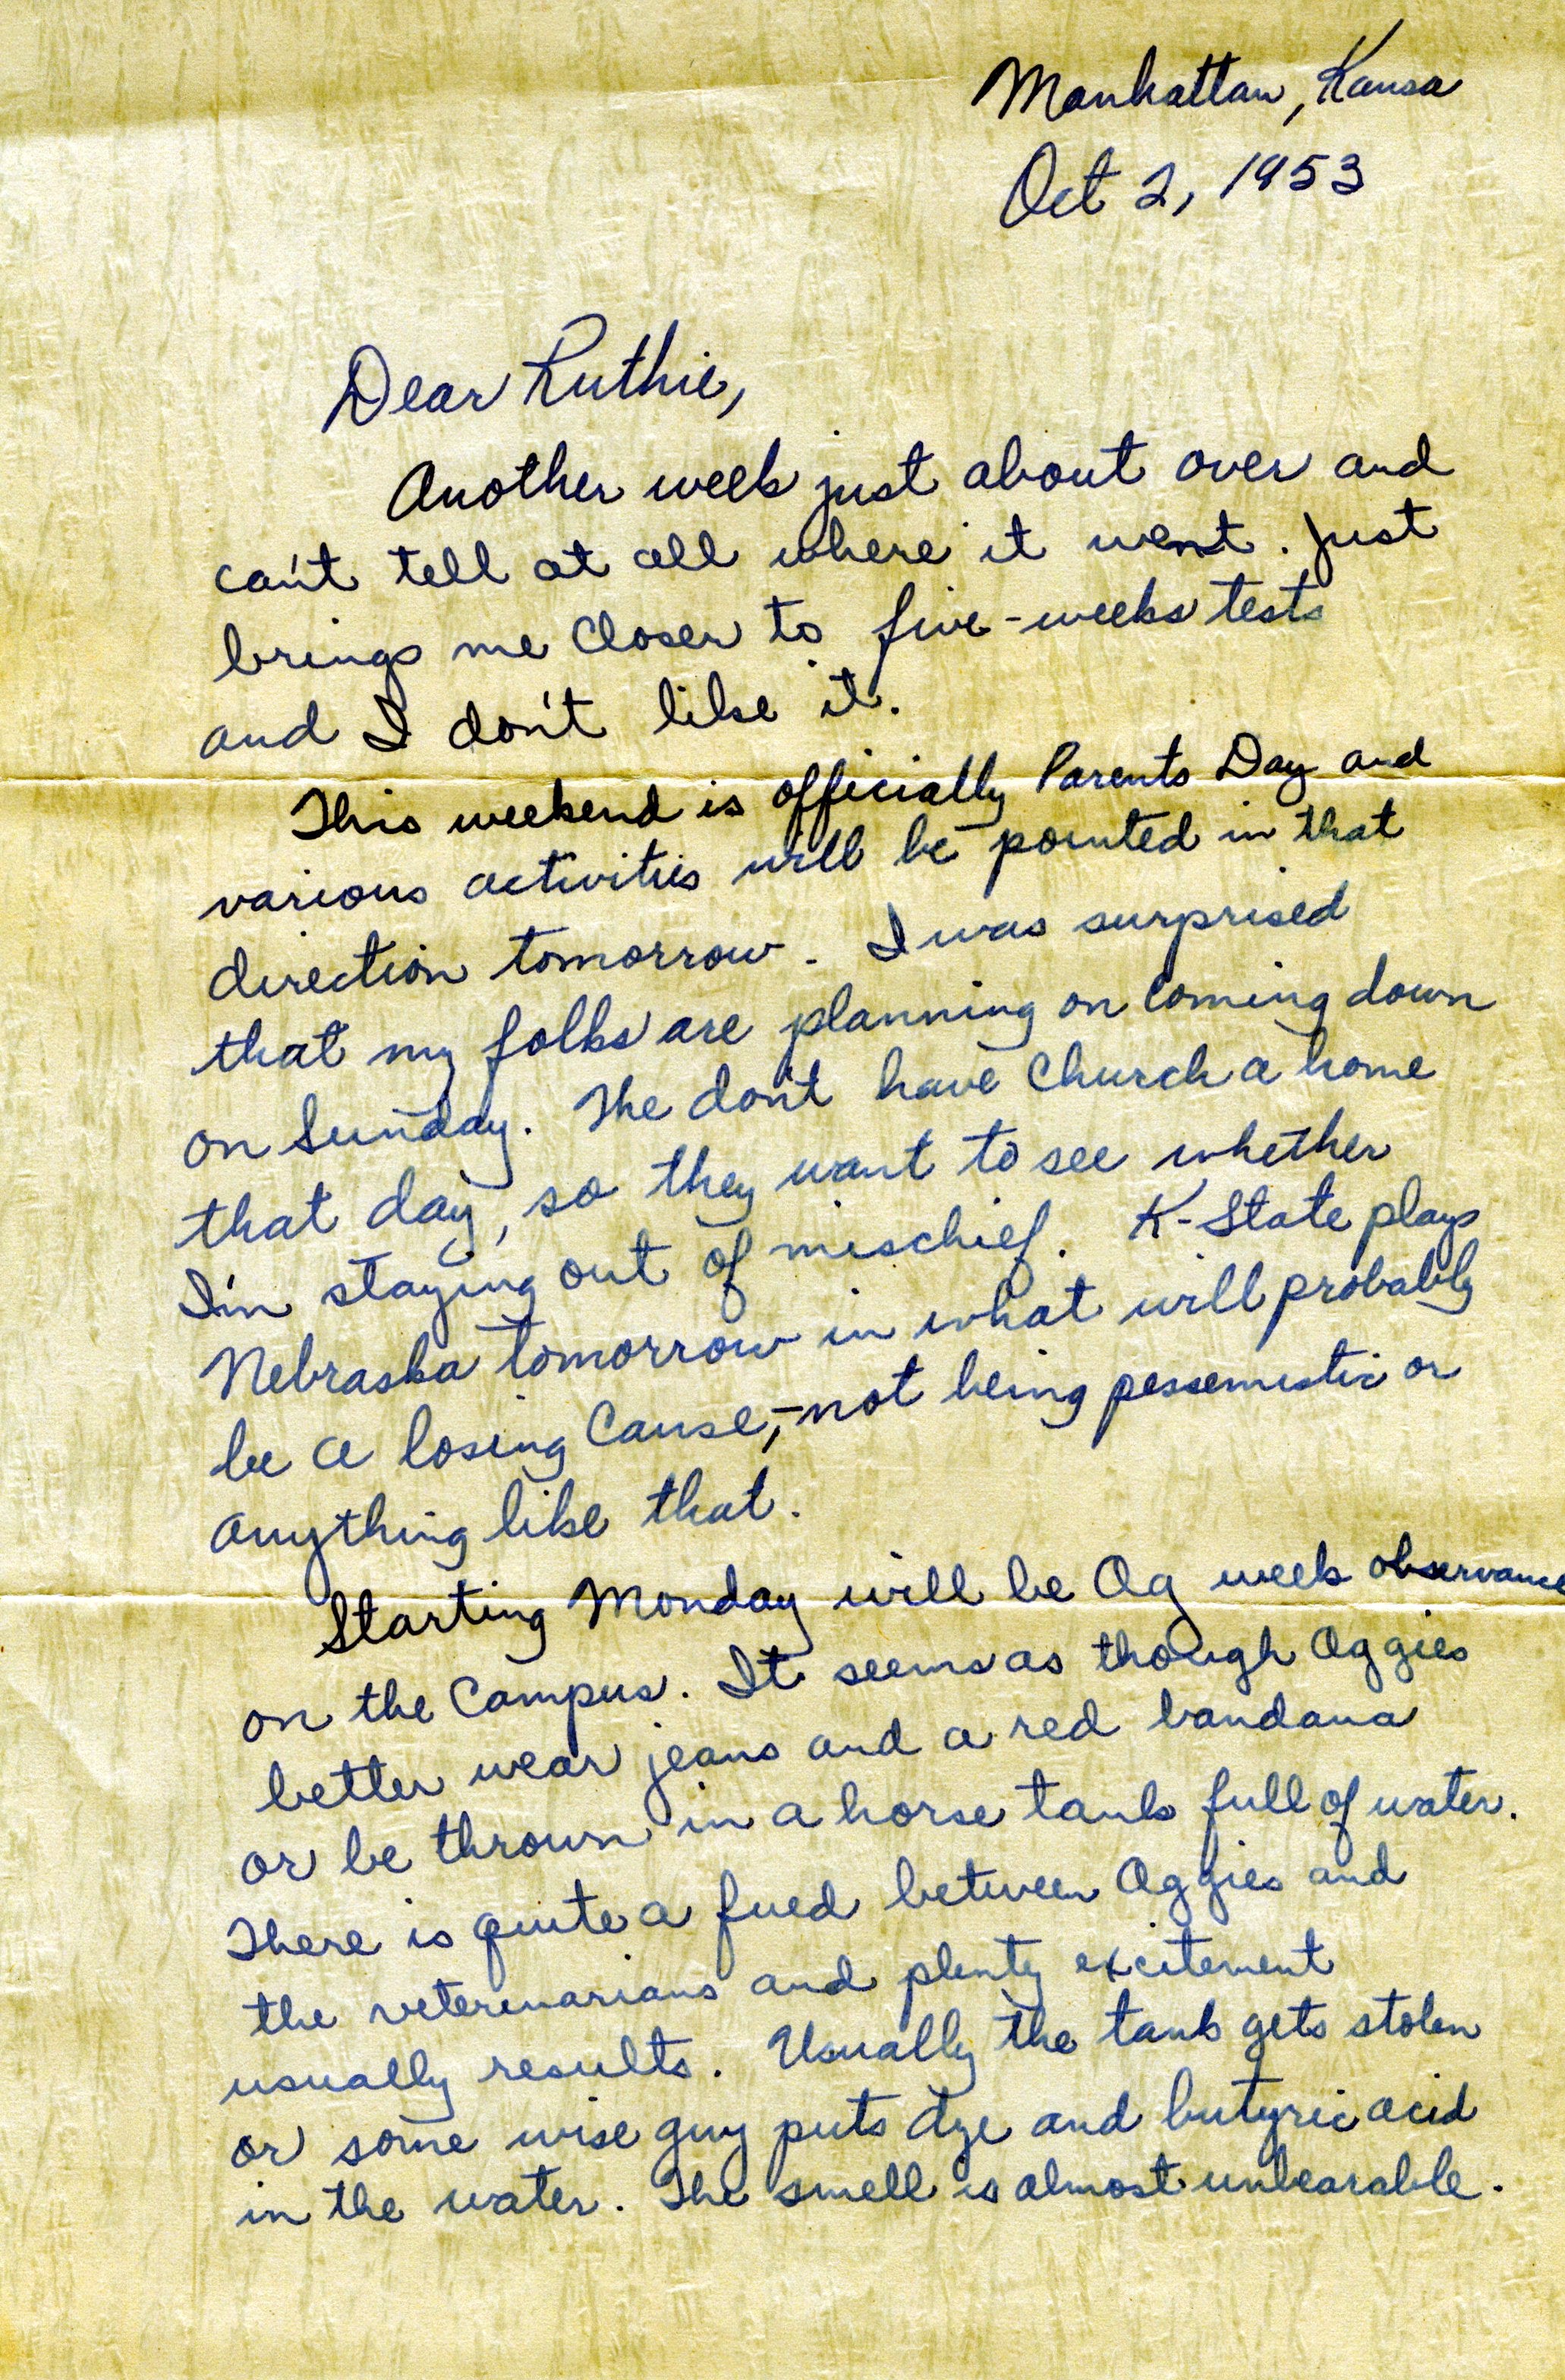 Manhattan, Kansa
Oct 2, 1953
Dear Ruthie,
Another week just about over and
can't tell at all where it went. Just
brings me closer to five-weeks tests
and I don't like it.
This weekend is officially Parents Day and
various activities will be pointed in that
direction tomorrow. I was surprised
that my folks are planning on coming down
on Sunday. The don't have Church a home
that day, so they want to see whether
I'm staying out of mischief. K-State plays
Nebraska tomorrow in what will probably
be a losing cause,-not being pessemistic or
anything like that.
Starting Monday will be Ag week observance
on the Campus. It seems as though Aggies
better wear jeans and a red bandana
or be thrown in a horse tank full of water.
There is quite a fued between Aggies and
the veterinarians and plenty excitement
usually results. Usually the tank gets stolen
or some wise guy puts dye and butyric acid
in the water. The smell is almost unbearable.